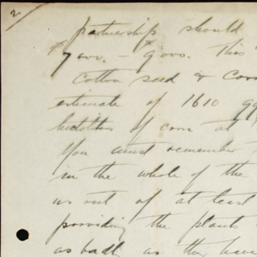 2
partnership should
$7000. – $9000. This
Cotton seed & Corn
estimate of 1610
of corn at
You must remember
in the whole of the
us out of at least
providing the plants
as badly as they have